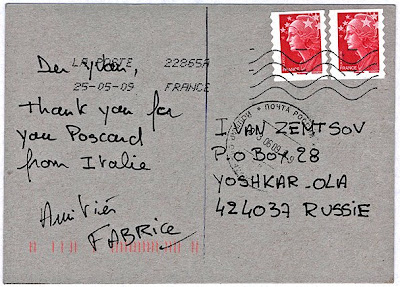 LA POSTE 22865A
25-05-09 FRANCE
Thank you for
you Poscard
from Italie
Amitiés
FABRICE
FRANCE
FRANCE
ПОЧТА
IVAN ZEMTSOV
P.O BOX 28
YOSHKAR-OLA
424037 RUSSIE